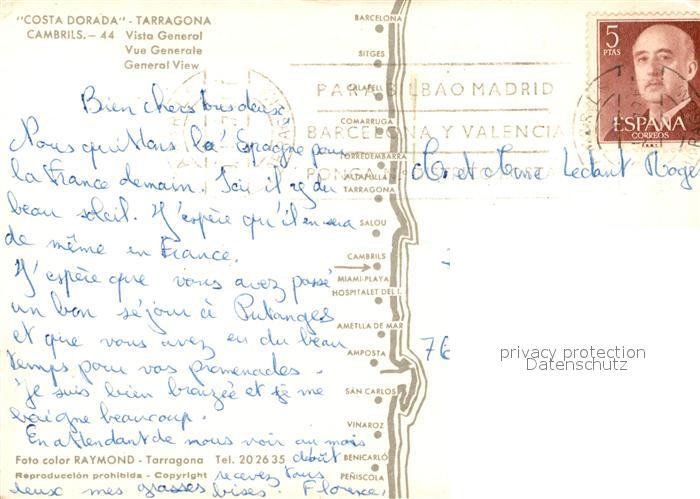 "COSTA DORADA" - TARRAGONA
CAMBRILS. - 44 Vista General
Vue Generale
General View
Bien chers tous deux
Nous quittons la Espagne pour
la France demain. Ici il y a du
beau soleil. J'espère qu'il en sera
de même en France.
J'espère que vous avez passé
un bon séjour à Putanges
et que vous avez eu du beau
temps pour vos promenades.
Je suis bien bronzée et je me
baigne beaucoup.
En attendant de nous voir au mois
d'août
recevez tous
deux mes grosses bises. Florence.
Foto color RAYMOND - Tarragona Tel. 20 26 35
Reproducción prohibida - Copyright
BARCELONA
SITGES
CALAFELL
COMARRUGA
TORREDEMBARRA
ALTAFULLA
TARRAGONA
SALOU
CAMBRILS
MIAMI-PLAYA
HOSPITALET DEL I.
AMETLLA DE MAR
AMPOSTA
SAN CARLOS
VINAROZ
BENICARLÓ
PEÑISCOLA
PARA BILBAO MADRID
BARCELONA Y VALENCIA
5
PTAS
ESPAÑA
CORREOS
Mr et Mme Leclant Roger
76
privacy protection
Datenschutz